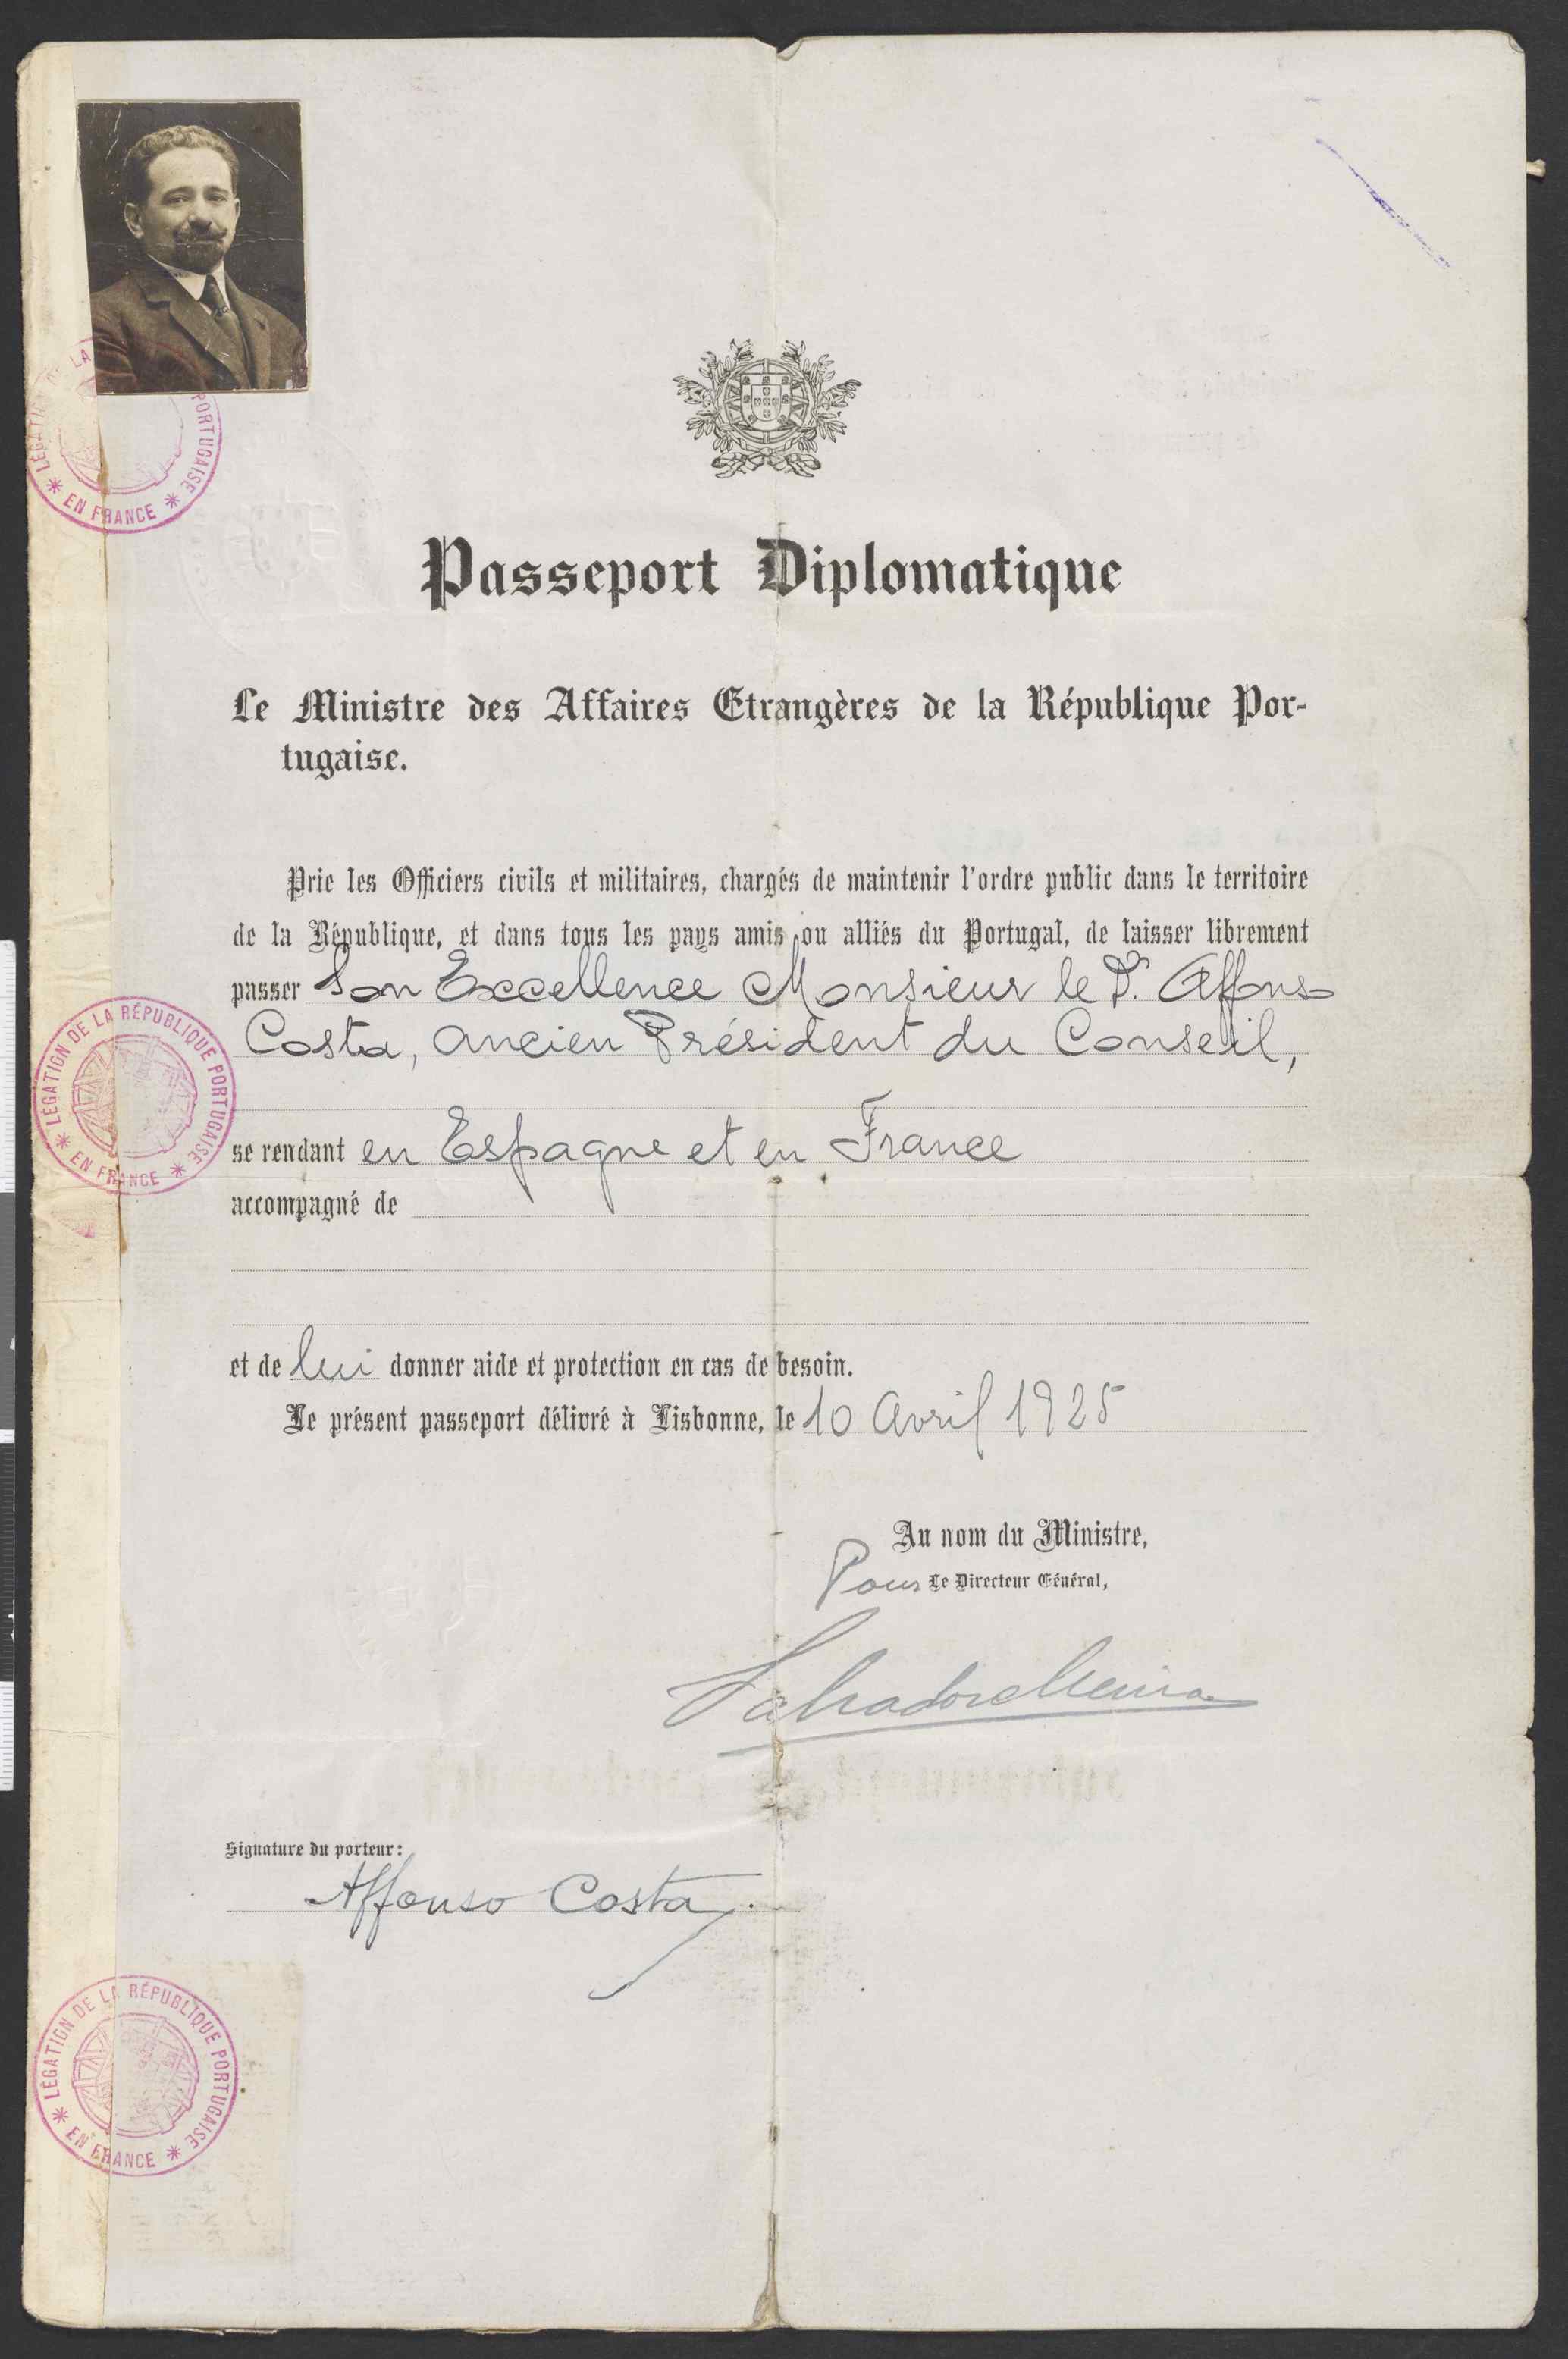 Passeport Diplomatique
Le Ministre des Affaires Etrangères de la République Por-
tugaise.
Prie les Officiers civils et militaires, chargés de maintenir l'ordre public dans le territoire
de la République, et dans tous les pays amis ou alliés du Portugal, de laisser librement
passer Son Excellence Monsieur le Dr. Affonso
Costa, ancien Président du Conseil,
se rendant en Espagne et en France
accompagné de
et de lui donner aide et protection en cas de besoin.
Le présent passeport délivré à Lisbonne, le 10 Avril 1925
Au nom du Ministre,
Pour Le Directeur Général,
Signature du porteur:
Affonso Costa
LÉGATION LA PORTUGAISE
* EN FRANCE *
LÉGATION DE LA RÉPUBLIQUE PORTUGAISE
* EN FRANCE *
LÉGATION DE LA RÉPUBLIQUE PORTUGAISE
* EN FRANCE *